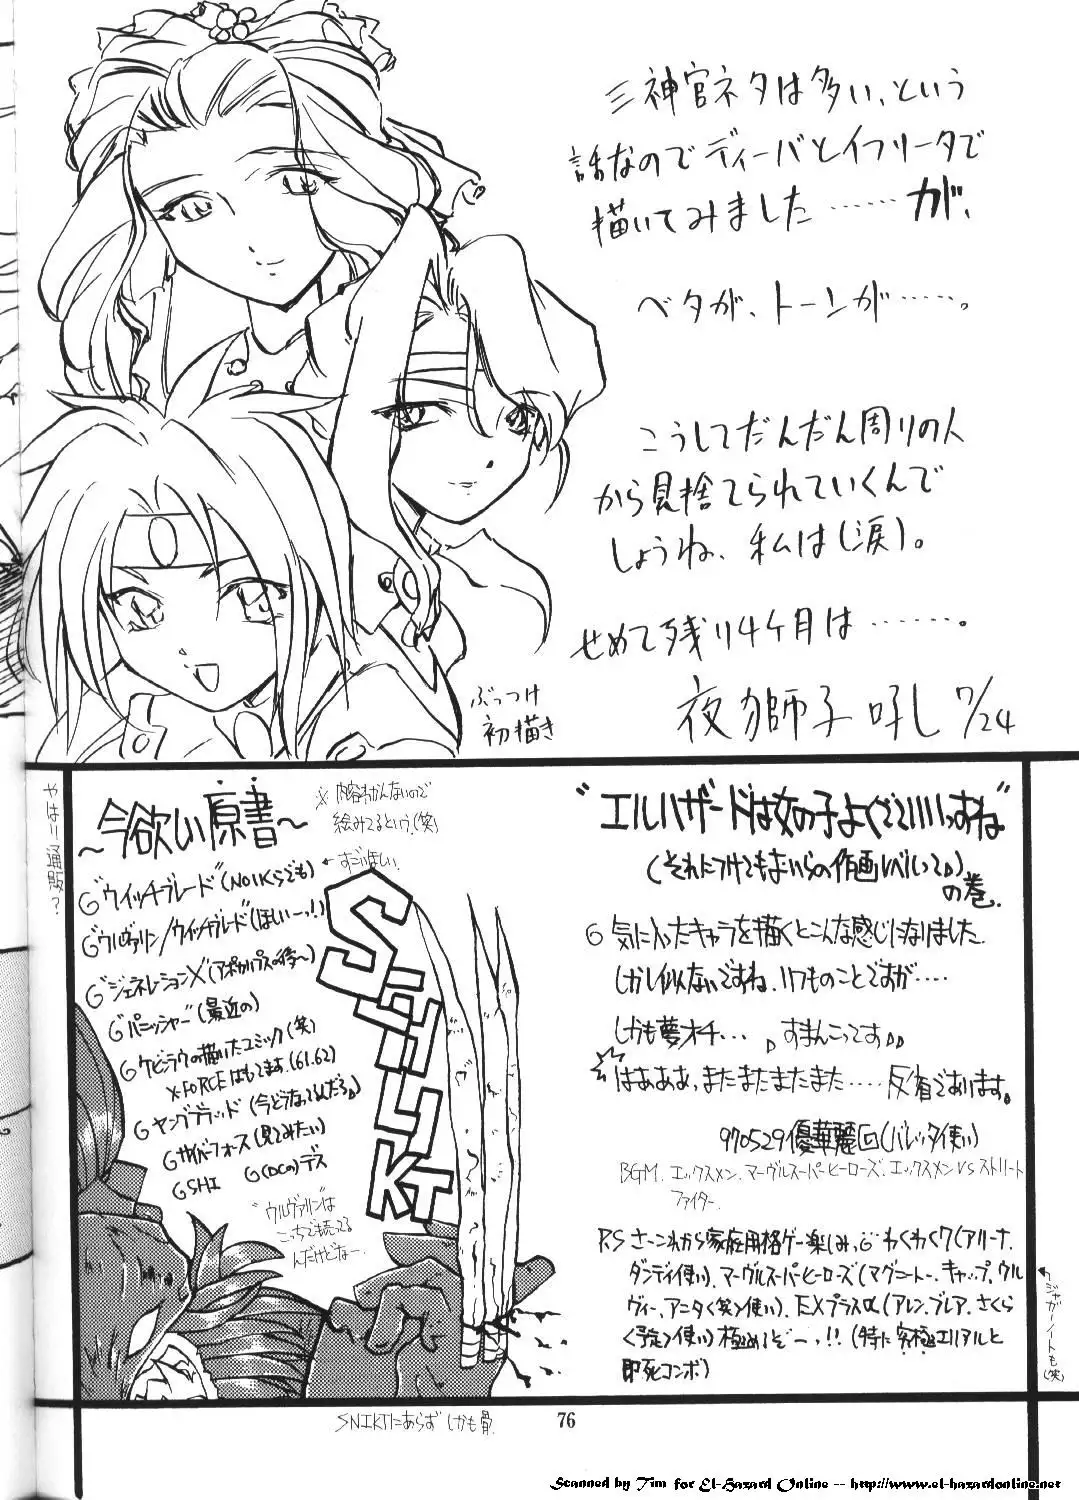 三神官ネタは多い、という
話なのでディーバとイフリータで
描いてみました……が、
ベタが、トーンが……。
こうしてだんだん周りの人
から見捨てられていくんで
しょうね、私は(涙)。
せめて残り4ヶ月は……。
夜獅子吼し 7/24
ぶっつけ
初描き
やはり通販?
〜今欲しい原書〜
※内容わかんないので
絵みてるという(笑)
←すごいほしい
"ウィッチブレード"(NO1Kらでも)
"ウルヴァリン/ウィッチブレード(ほしいーっ!)
"ジェネレーションX"(アポカリプスの後〜)
"パニッシャー"(最近の)
ケビンラウの描いたコミック(笑)
X-FORCEはもってます。(61.62)
ヤングブラッド(今どうなってるんだろ)
サイバーフォース(見てみたい)
SHI
(DCの)デス
"ウルヴァリン"は
こっちでも売ってる
んだけどなー
"エルハザードは女の子よくでていいっすね"
(それにつけてもおいらの作画レベルって)
の巻
気に入ったキャラを描くとこんな感じになりました。
しかし似ないですね、いつものことですが……
しかも夢オチ… すまんこってす
はぁぁぁ、またまたまたまた……反省であります。
970529 優華麗 (バレッタ使い)
BGM. エックスメン、マーヴルスーパーヒーローズ、エックスメンVSストリート
ファイター
P.S さーこれから家庭用格ゲー楽しみ。わくわく7(アリーナ、
ダンディ使い)、マーヴルスーパーヒーローズ(マグニートー、キャップ、ウル
ヴィー、アニタ<笑>使い)、EXプラスα(アレン、ブレア、さくら
<予定>使い)極めるぞーっ!!(特に究極エリアルと
即死コンボ)
←ジャガーノートも(笑)
SNIKTにあらず しかも骨
76
Scanned by Tim for El-Hazard Online -- http://www.el-hazardonline.net